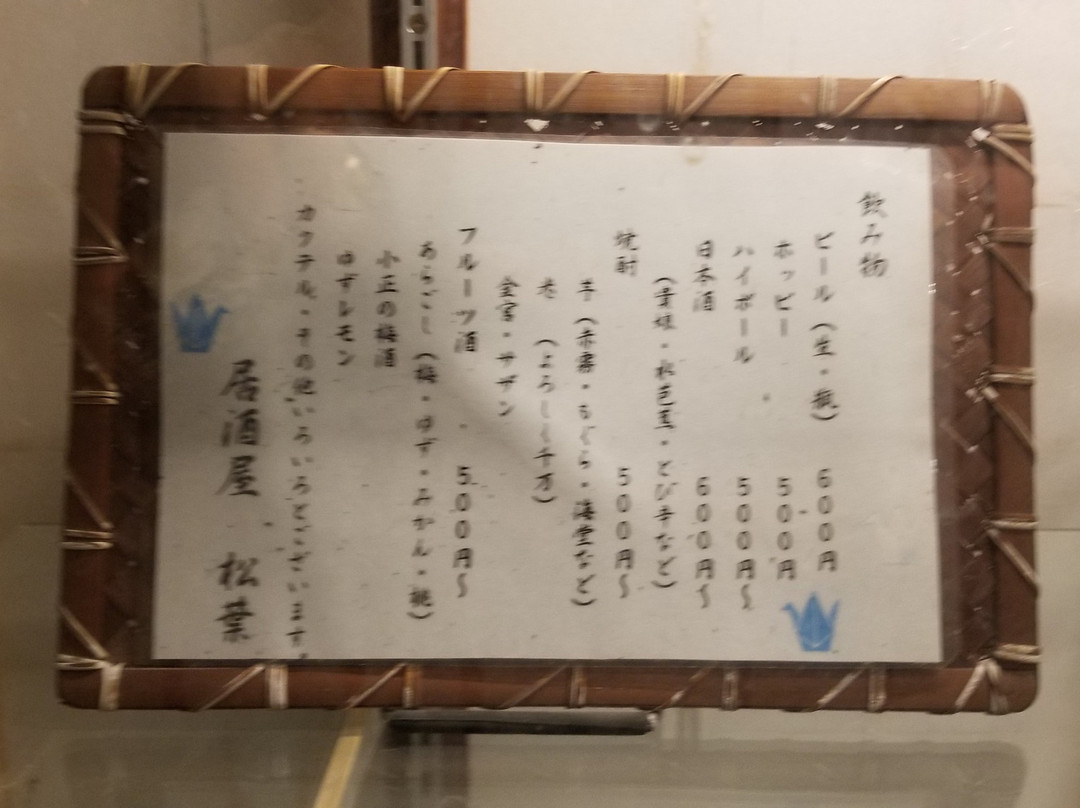 飲み物
ビール（生・瓶） ６００円
ホッピー ５００円
ハイボール ５００円〜
日本酒 ６００円〜
焼酎 ５００円〜
芋（赤霧・もぐら・海堂など）
（よろしく千万）
金宮・サザン
フルーツ酒 ５００円〜
あらごし（梅・ゆず・みかん・桃）
小正の梅酒
ゆずレモン
カクテル・その他いろいろとございます。
居酒屋 松葉